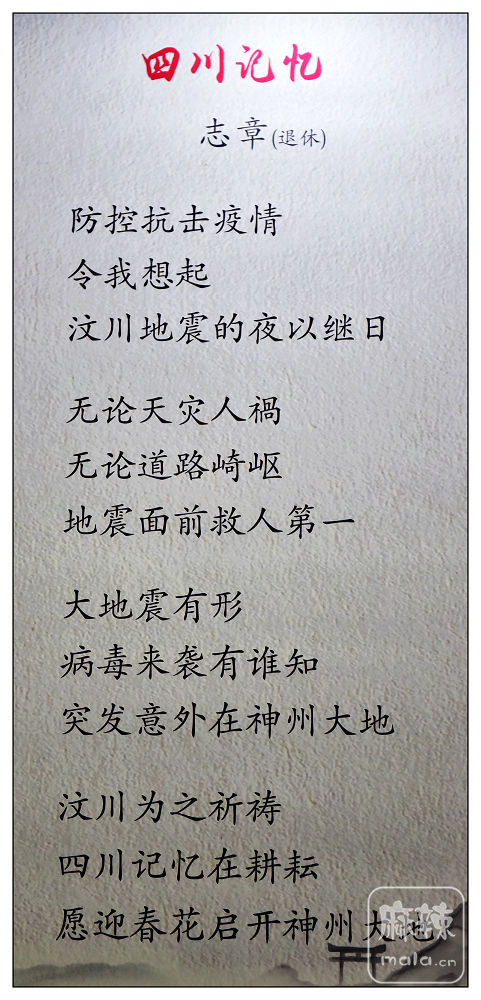 四川记忆
志章(退休)
防控抗击疫情
令我想起
汶川地震的夜以继日
无论天灾人禍
无论道路崎岖
地震面前救人第一
大地震有形
病毒来袭有谁知
突发意外在神州大地
汶川为之祈祷
四川记忆在耕耘
愿迎春花启开神州大地
麻辣
mala.cn